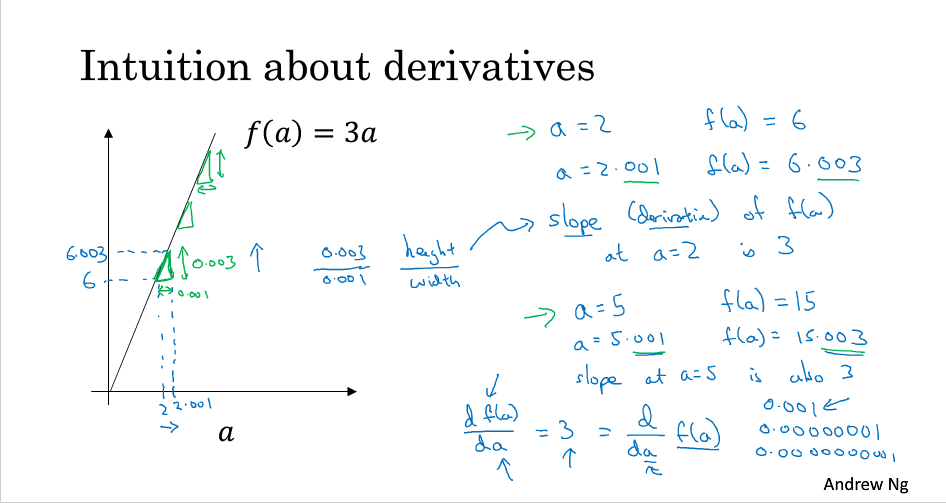 Intuition about derivatives
f(a) = 3a
6.003
6
0.003
0.001
2
2.001
a
0.003
0.001
height
width
→ a = 2 f(a) = 6
a = 2.001 f(a) = 6.003
slope (derivative) of f(a)
at a=2 is 3
→ a = 5 f(a) = 15
a = 5.001 f(a) = 15.003
slope at a=5 is also 3
d f(a)
da
= 3 =
d
da
f(a)
0.001 ←
0.00000001
Andrew Ng